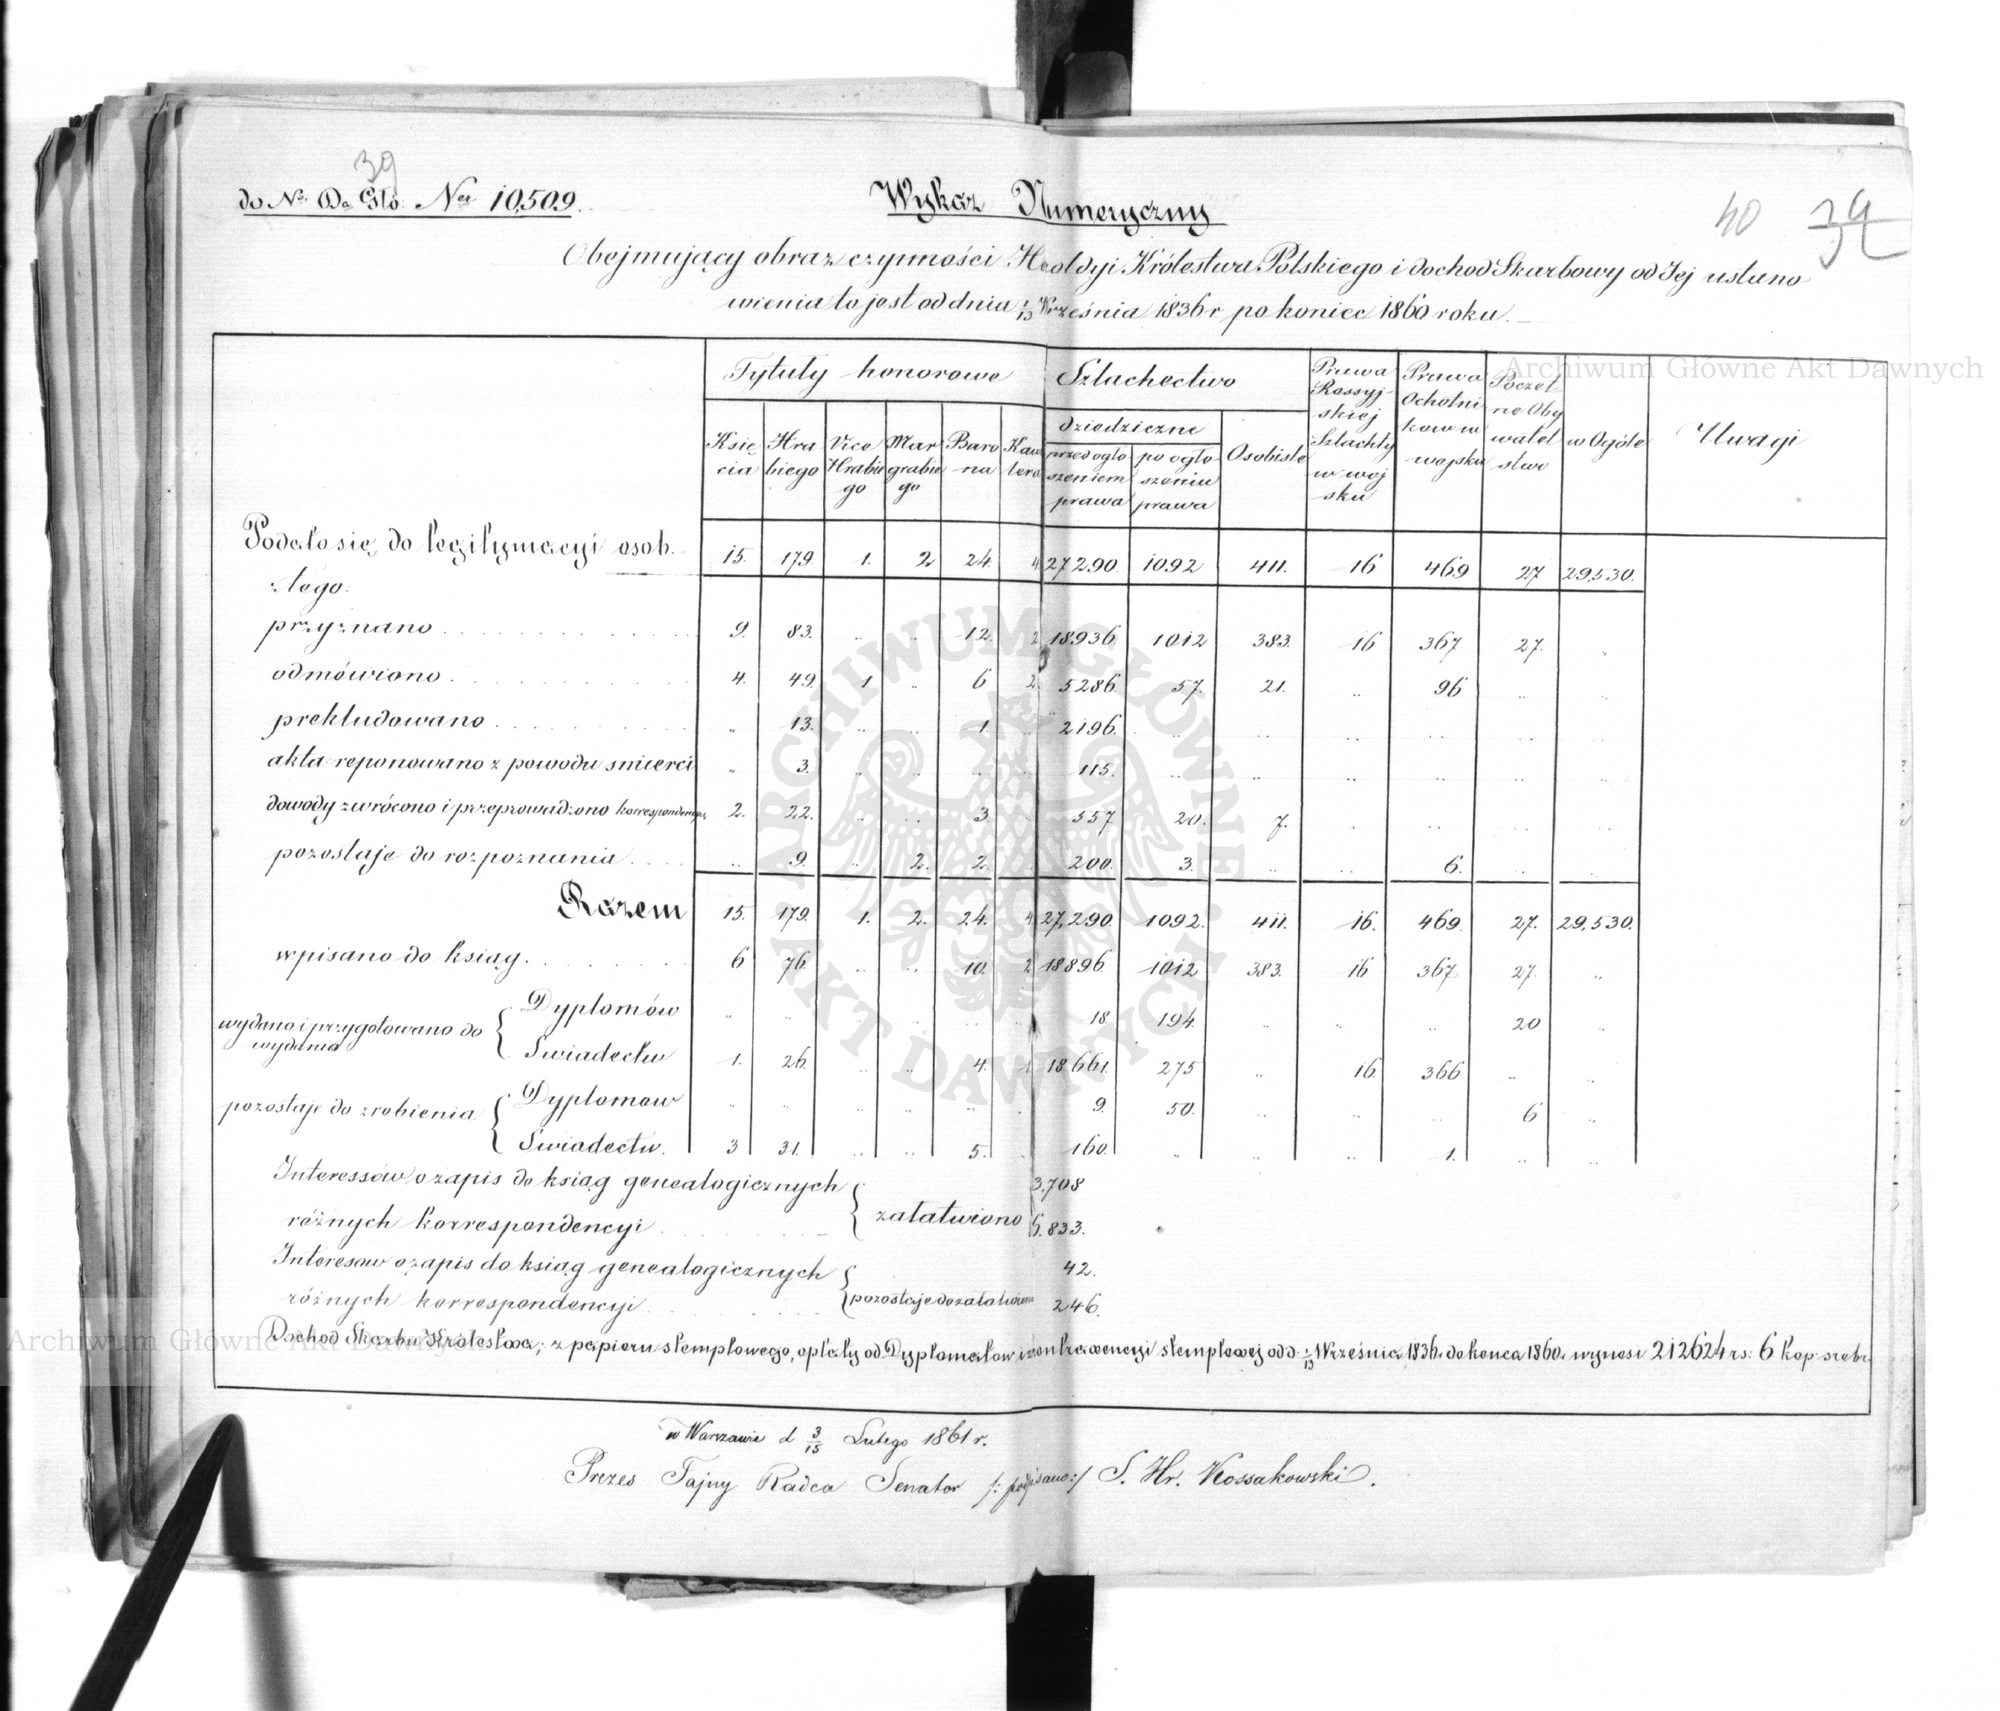 39
do No. Da Głó. Nra 10,509.
Wykaz Numeryczny
40 39
Obejmujący obraz czynności Heroldyi Królestwa Polskiego i dochod Skarbowy od Jej ustano
wienia to jest od dnia 1/13 Września 1836 r po koniec 1860 roku.
Tytuły honorowe Szlachectwo Prawa Rossyj- skiej Szlachty w woj sku Prawa Ochotni ków w wojsku Poczet ne Oby watel stwo w Ogóle Uwagi
dziedziczne Osobiste
Księ cia Hra biego Vice Hrabie go Mar grabie go Baro na Kawa lera przed ogło szeniem prawa po ogło szeniu prawa
Podało się do legitymacyi osob. 15. 179. 1. 2 24. 4. 27290. 1092 411. 16 469 27 29,530.
z tego:
przyznano 9. 83. .. .. 12. 2 18936 1012 383. 16 367 27. ..
odmówiono 4. 49. 1 .. 6 2. 5286. 57. 21. .. 96 .. ..
prekludowano .. 13. .. .. 1. .. 2196. .. .. .. .. .. ..
akta reponowano z powodu śmierci .. 3. .. .. .. .. 115. .. .. .. .. .. ..
dowody zwrócono i przeprowadzono korrespondencyę 2. 22. .. .. 3. .. 557 20. 7. .. .. .. ..
pozostaje do rozpoznania .. 9. .. 2. 2. .. 200. 3. .. .. 6. .. ..
Razem 15. 179. 1. 2. 24. 4. 27,290. 1092. 411. 16. 469. 27. 29,530.
wpisano do ksiąg. 6 76. .. .. 10. 2 18896. 1012 383. 16 367 27. ..
wydano i przygotowano do wydania { Dyplomów .. .. .. .. .. .. 18. 194. .. .. .. 20 ..
Świadectw 1. 26. .. .. 4. 1. 18661. 275 .. 16. 366 .. ..
pozostaje do zrobienia { Dyplomow .. .. .. .. .. .. 9. 50. .. .. .. 6 ..
Świadectw. 3 31. .. .. 5. .. 160. .. .. .. 1. .. ..
Interessów o zapis do ksiąg genealogicznych { załatwiono 3,708
różnych korrespondencyi 5.833.
Interesow o zapis do ksiąg genealogicznych { pozostaje do załatwienia 42.
różnych korrespondencyi 246.
Dochod Skarbu Królestwa, z papieru stemplowego, opłaty od Dyplomatow i kontrawencyi stemplowej od d. 1/13 Września 1836. do końca 1860. wynosi 212624 rs: 6 kop: srebr.
w Warszawie d 3/15 Lutego 1861 r.
Prezes Tajny Radca Senator /: podpisano :/ S. Hr. Kossakowski.
Archiwum Główne Akt Dawnych
Archiwum Główne Akt Dawnych
ARCHIWUM GŁÓWNE AKT DAWNYCH